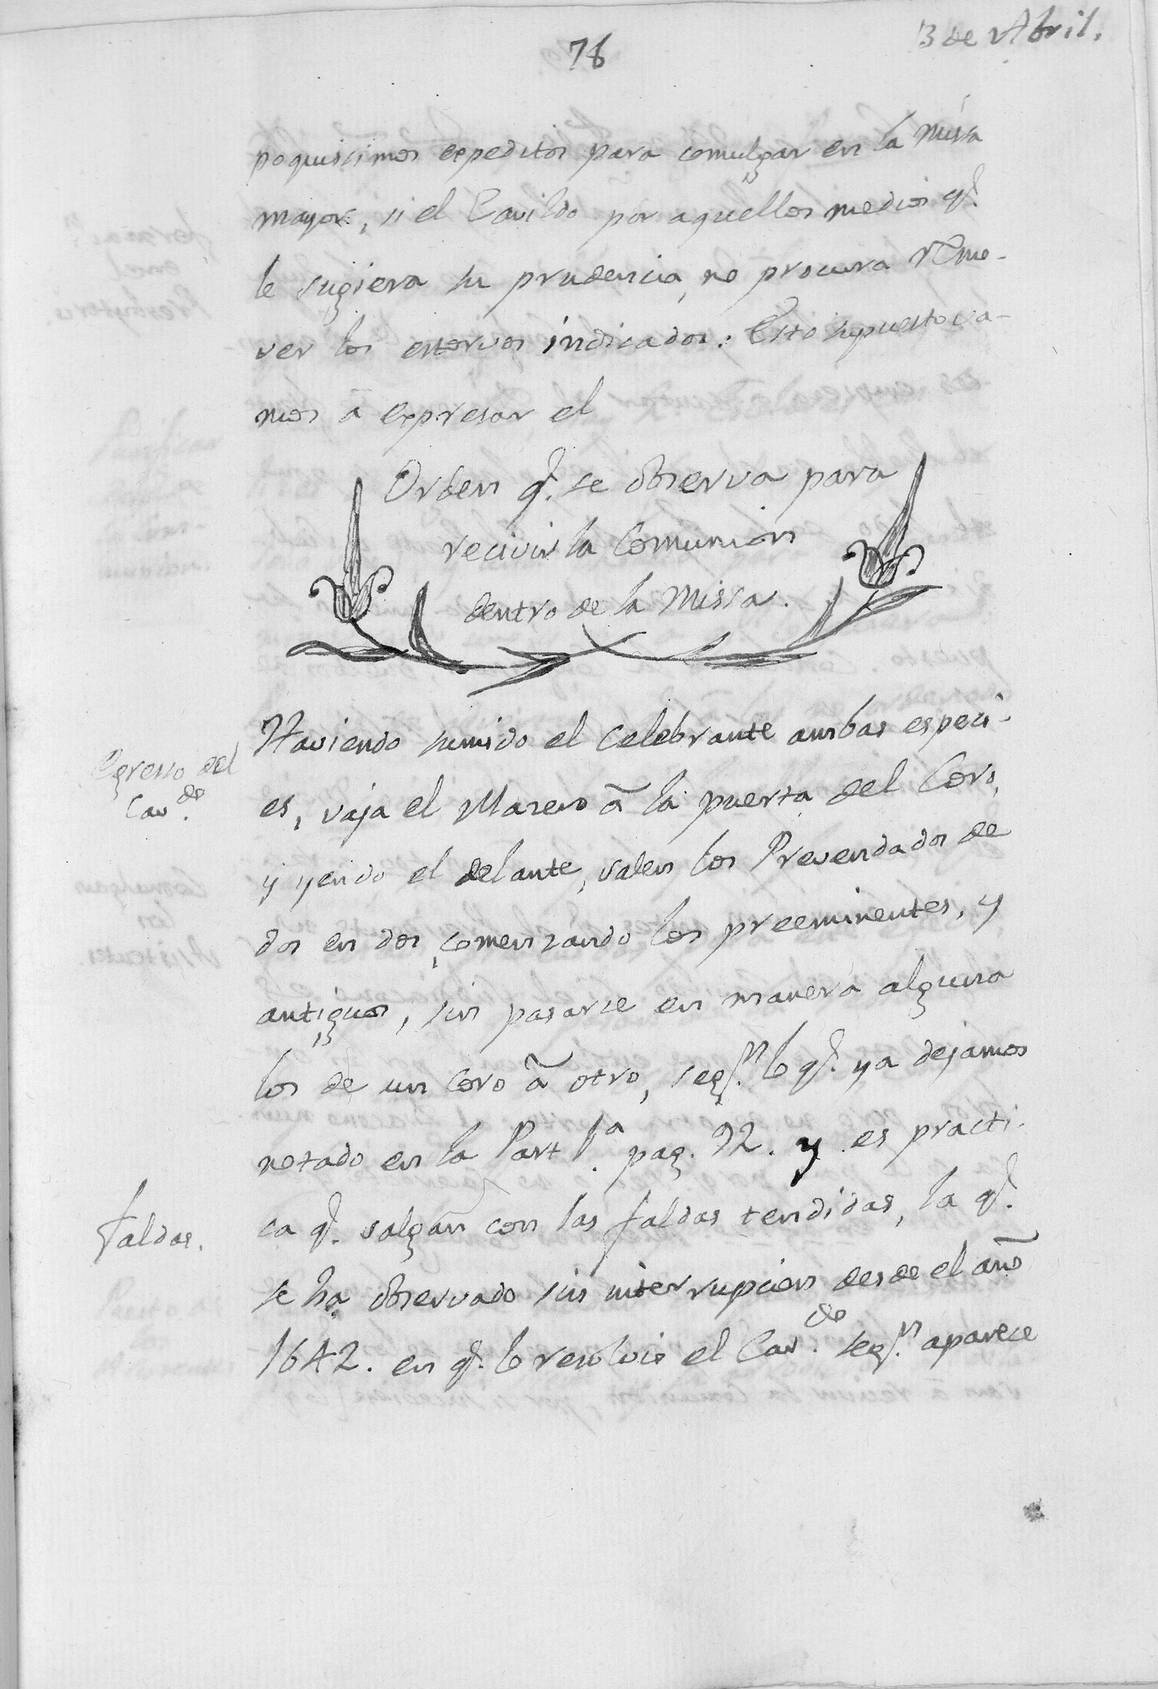 78
13 de Abril.
poquissimos expeditos para comulgar en la missa
mayor, si el Cavildo por aquellos medios q.^e
le sugiera su prudencia, no procura remo-
ver los estorvos indicados: Esto supuesto va-
mos à expresar el
Orden q.^e se observa para
recivir la Comunion
dentro de la Missa.
Egresso del
Cav.^do
Haviendo sumido el Celebrante ambas especi-
es, vaja el Macero à la puerta del Coro,
y yendo el delante, salen los Prevendados de
dos en dos, comenzando los preeminentes, y
antiguos, sin pasarse en manera alguna
los de un Coro à otro, seg.^n lo q.^e ya dejamos
notado en la Part. 1.^a pag. 92. y es practi-
Faldas.
ca q.^e salgan con las faldas tendidas, la q.^e
se ha observado sin interrupcion desde el año
1642. en q.^e lo resolvio el Cav.^do seg.^n aparece